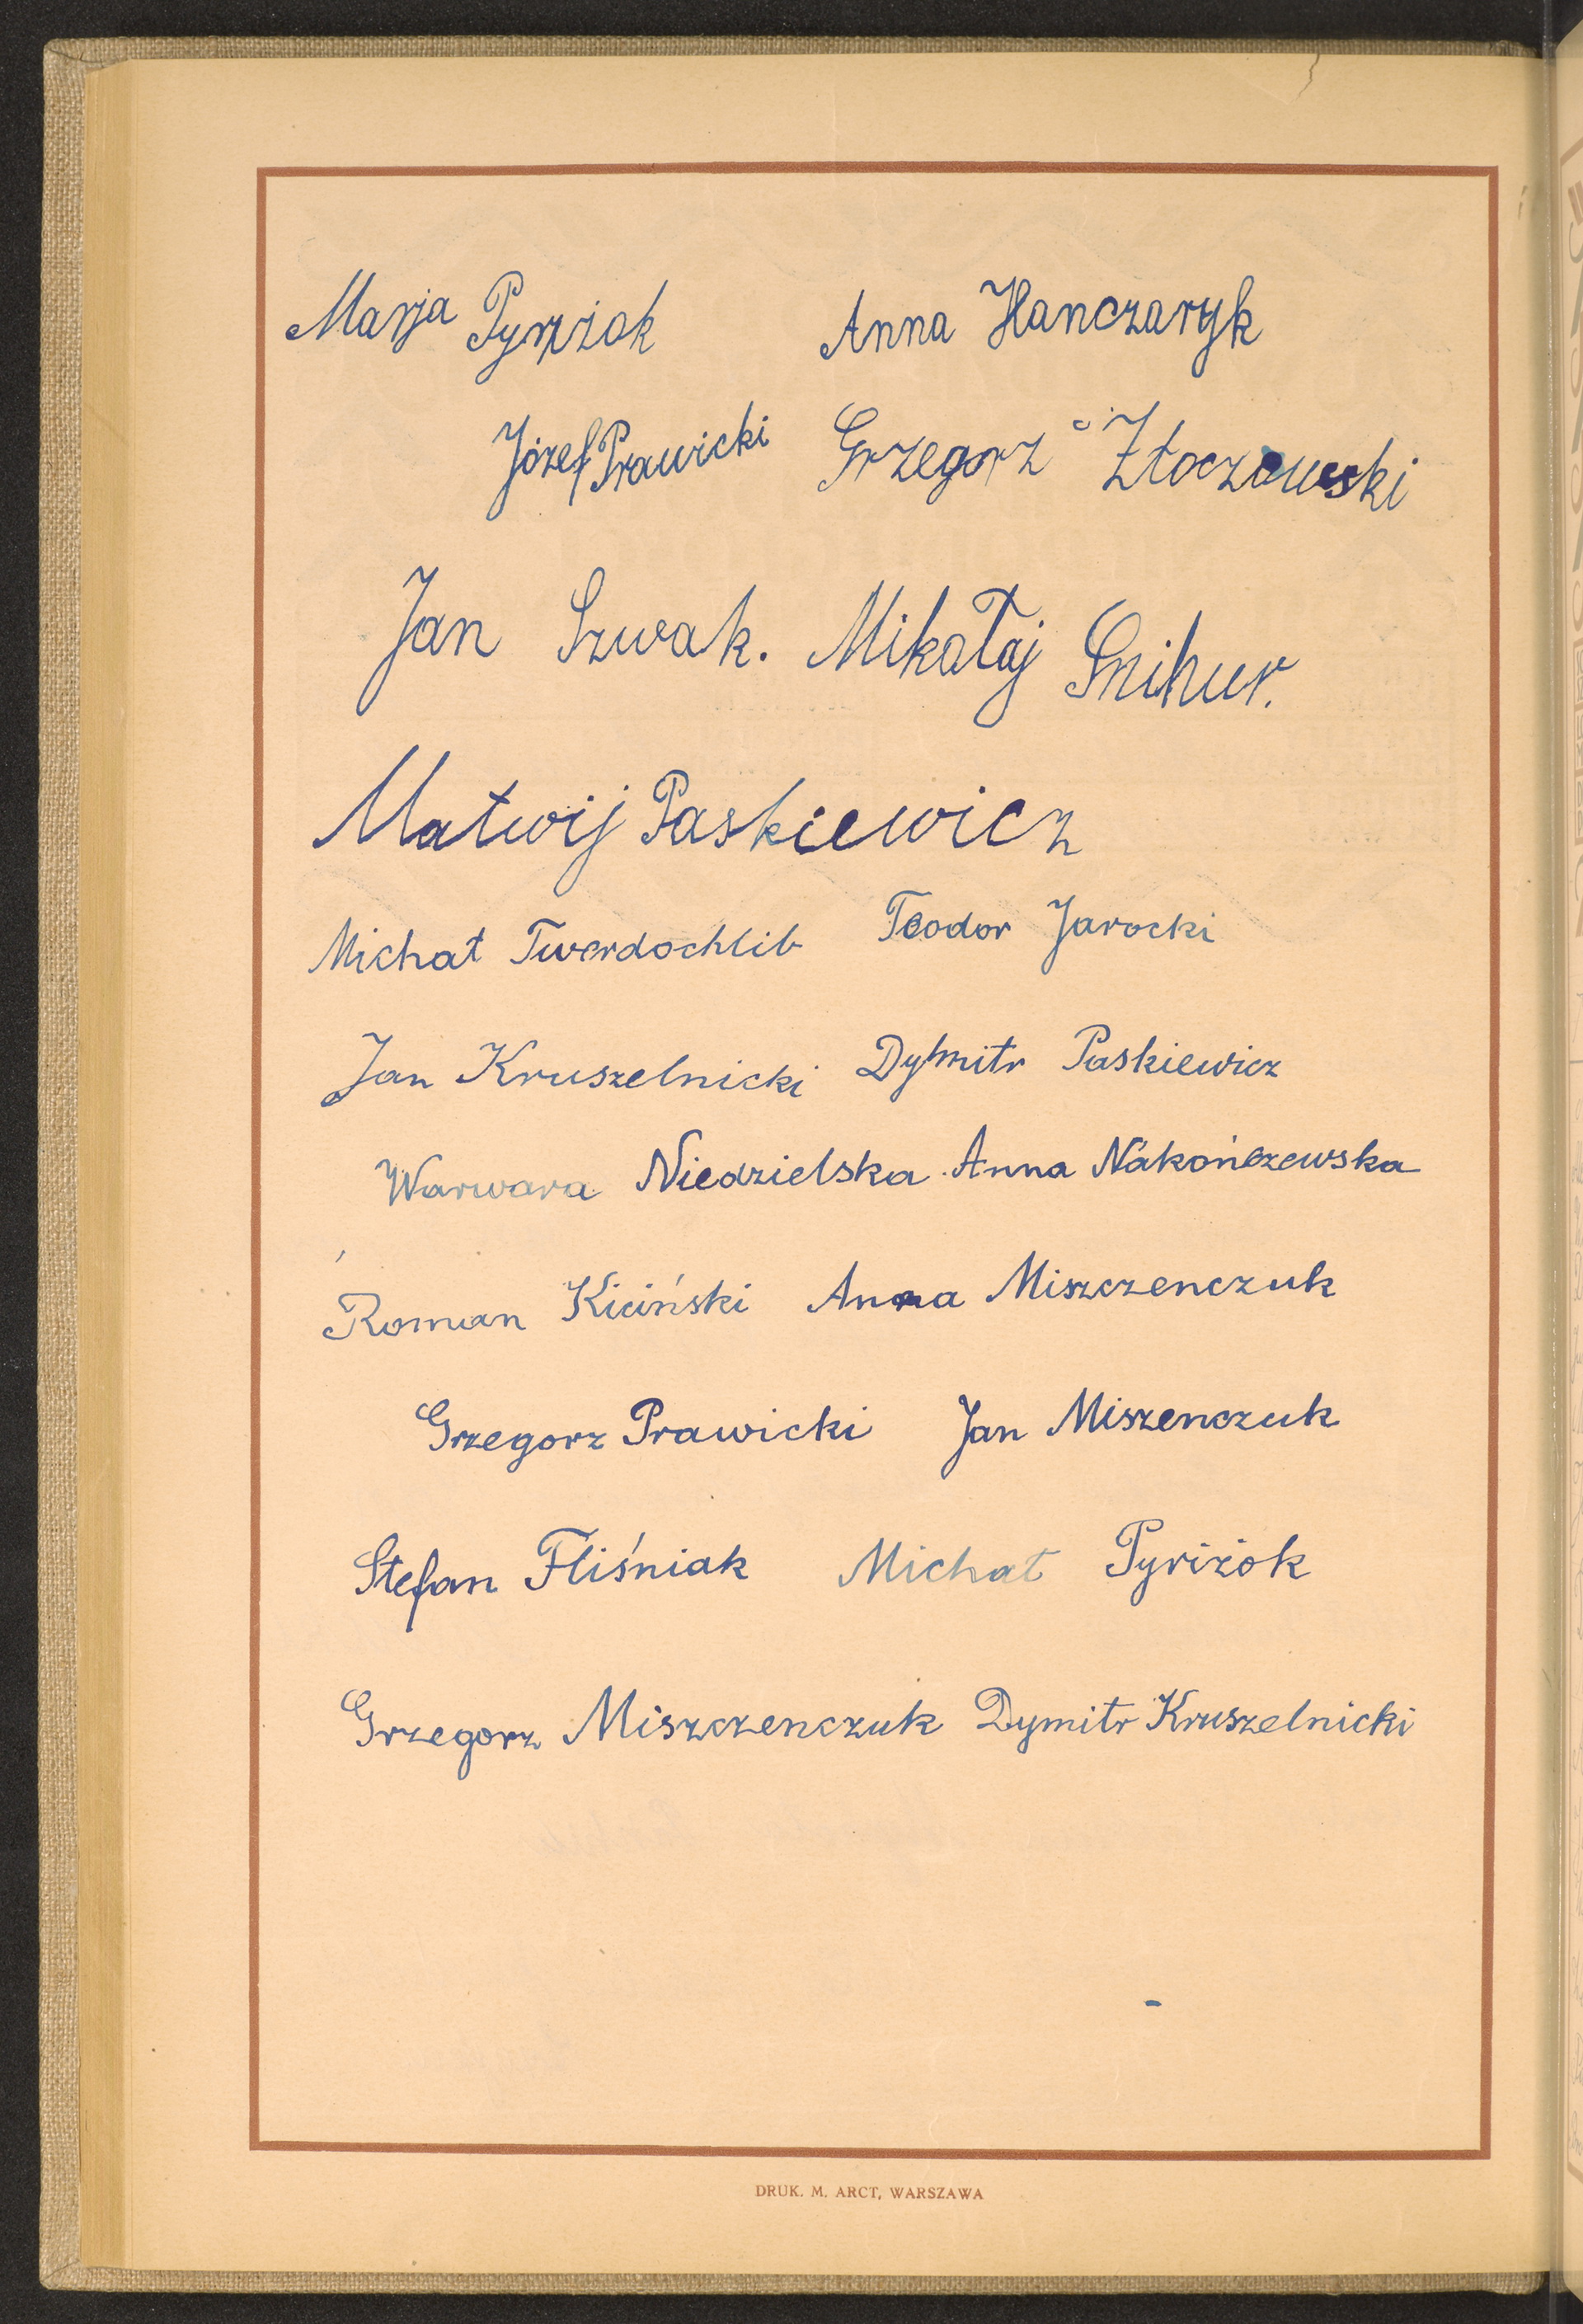 Marja Pyryżok Anna Hanczaryk
Józef Prawicki Grzegorz Złoczowski
Jan Szwak. Mikałaj Snihur.
Matwij Paskiewicz
Michał Twerdochlib Teodor Jarocki
Jan Kruszelnicki Dymitr Paskiewicz
Warwara Niedzielska Anna Nakończewska
Roman Kiciński Anna Miszczenczuk
Grzegorz Prawicki Jan Miszenczuk
Stefan Fliśniak Michał Pyriżok
Grzegorz Miszczenczuk Dymitr Kruszelnicki
DRUK. M. ARCT, WARSZAWA